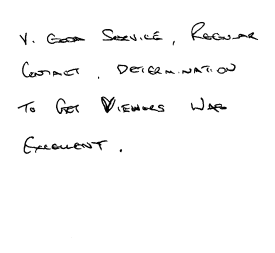 V. GOOD SERVICE, REGULAR
CONTACT, DETERMINATION
TO GET VIEWERS WAS
EXCELLENT.